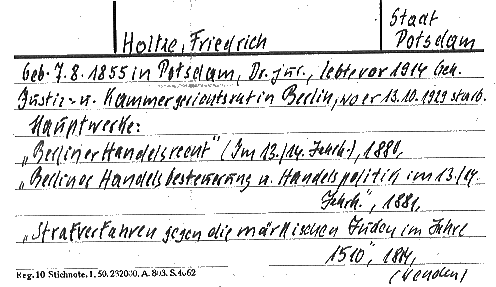 Holtze, Friedrich
Stadt
Potsdam
Geb. 7.8.1855 in Potsdam, Dr. jur., lebte vor 1914 Geh.
Justiz- u. Kammergerichtsrat in Berlin, wo er 13.10.1929 starb.
Hauptwerke:
„Berliner Handelsrecht" (Im 13./14. Jahrh.), 1880,
„Berliner Handelsbesteuerung u. Handelspolitik im 13./14.
Jahrh.", 1881,
„Strafverfahren gegen die märkischen Juden im Jahre
1510", 1884,
(wenden)
Reg. 10 Stichnote. I. 50. 232000. A. 803. S. 4062